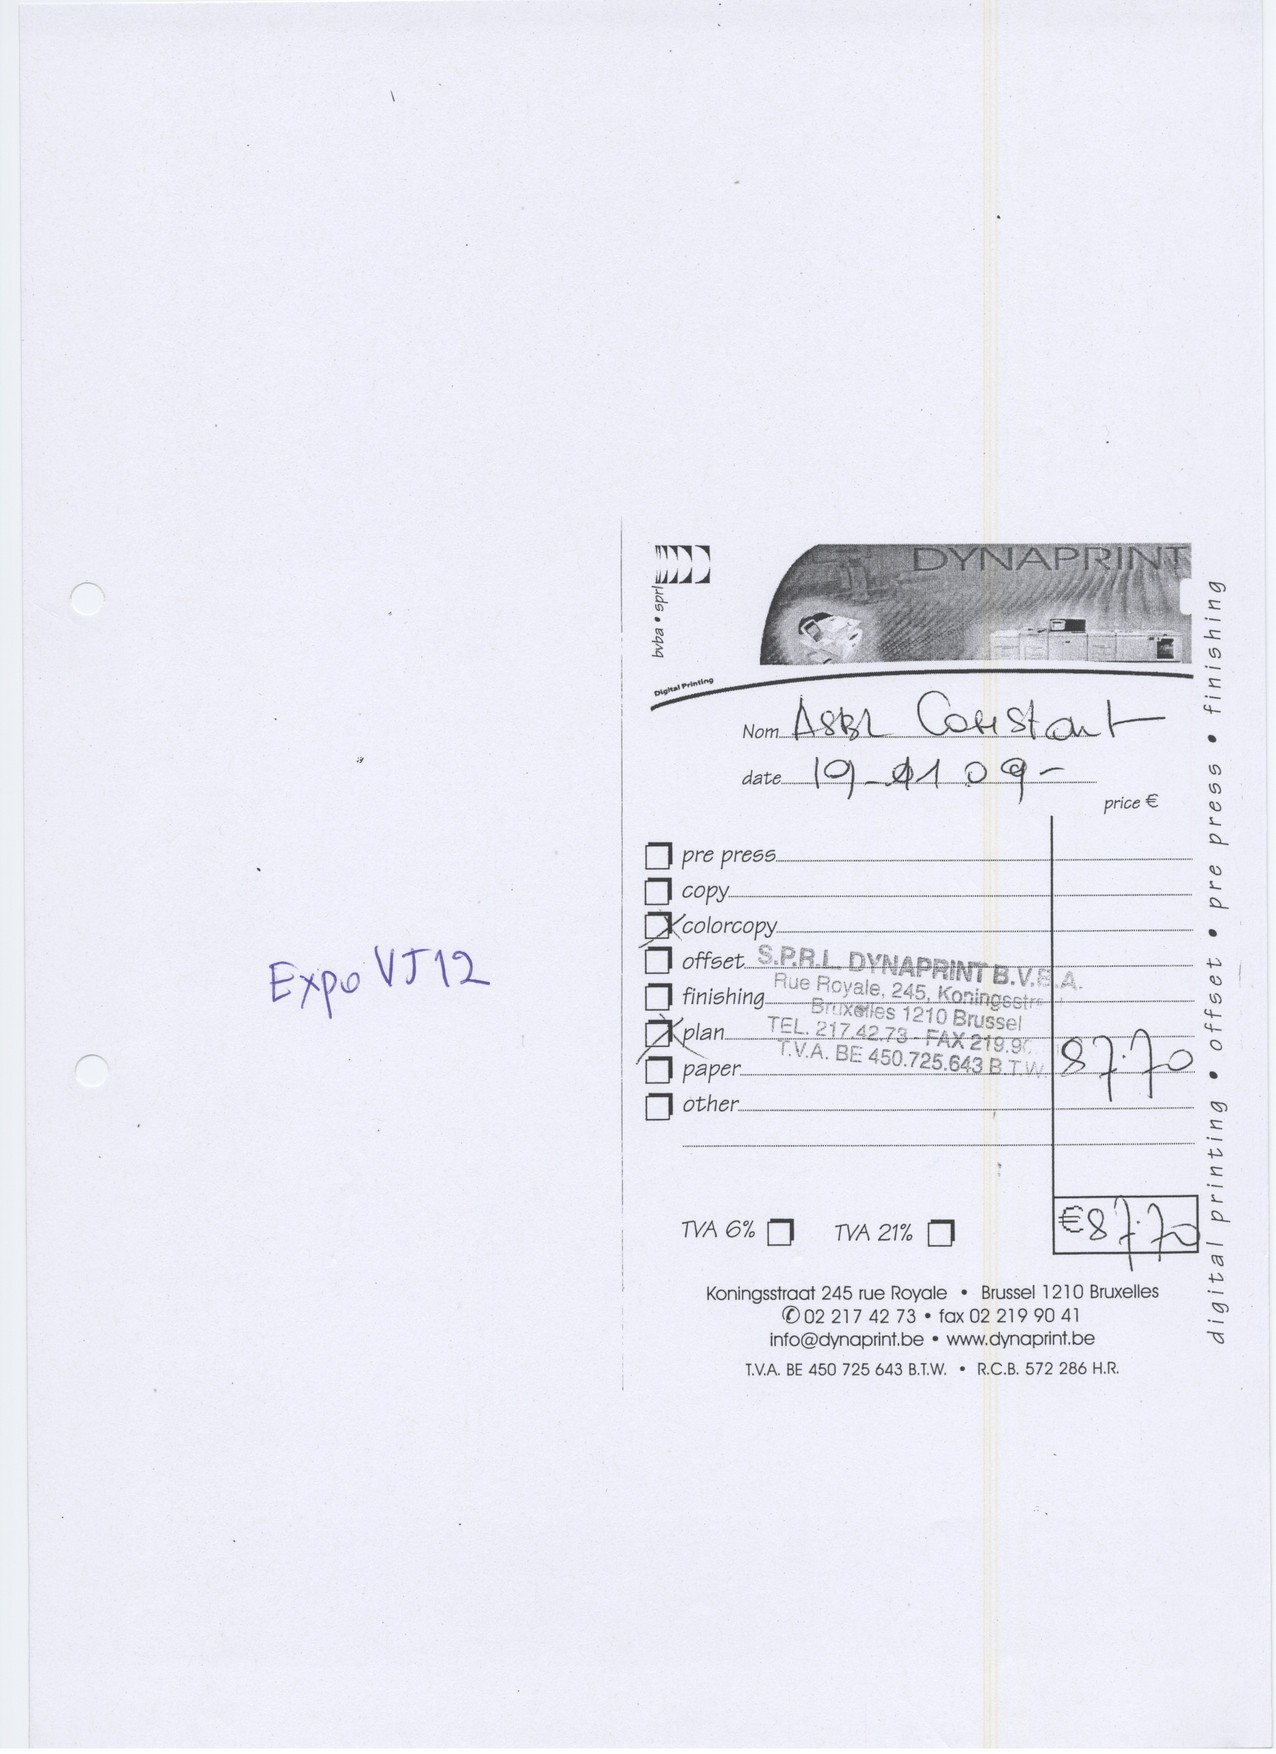 DYNAPRINT
bvba • sprl
Digital Printing
Nom ASBL Constant
date 19-01 09-
price €
pre press
copy
colorcopy
offset
finishing
plan
paper
other
S.P.R.L. DYNAPRINT B.V.B.A.
Rue Royale, 245, Koningsstr
Bruxelles 1210 Brussel
TEL. 217.42.73 - FAX 219.9
T.V.A. BE 450.725.643 B.T.W.
87.70
Expo VJ12
TVA 6% TVA 21%
€87.70
Koningsstraat 245 rue Royale • Brussel 1210 Bruxelles
✆ 02 217 42 73 • fax 02 219 90 41
info@dynaprint.be • www.dynaprint.be
T.V.A. BE 450 725 643 B.T.W. • R.C.B. 572 286 H.R.
digital printing • offset • pre press • finishing